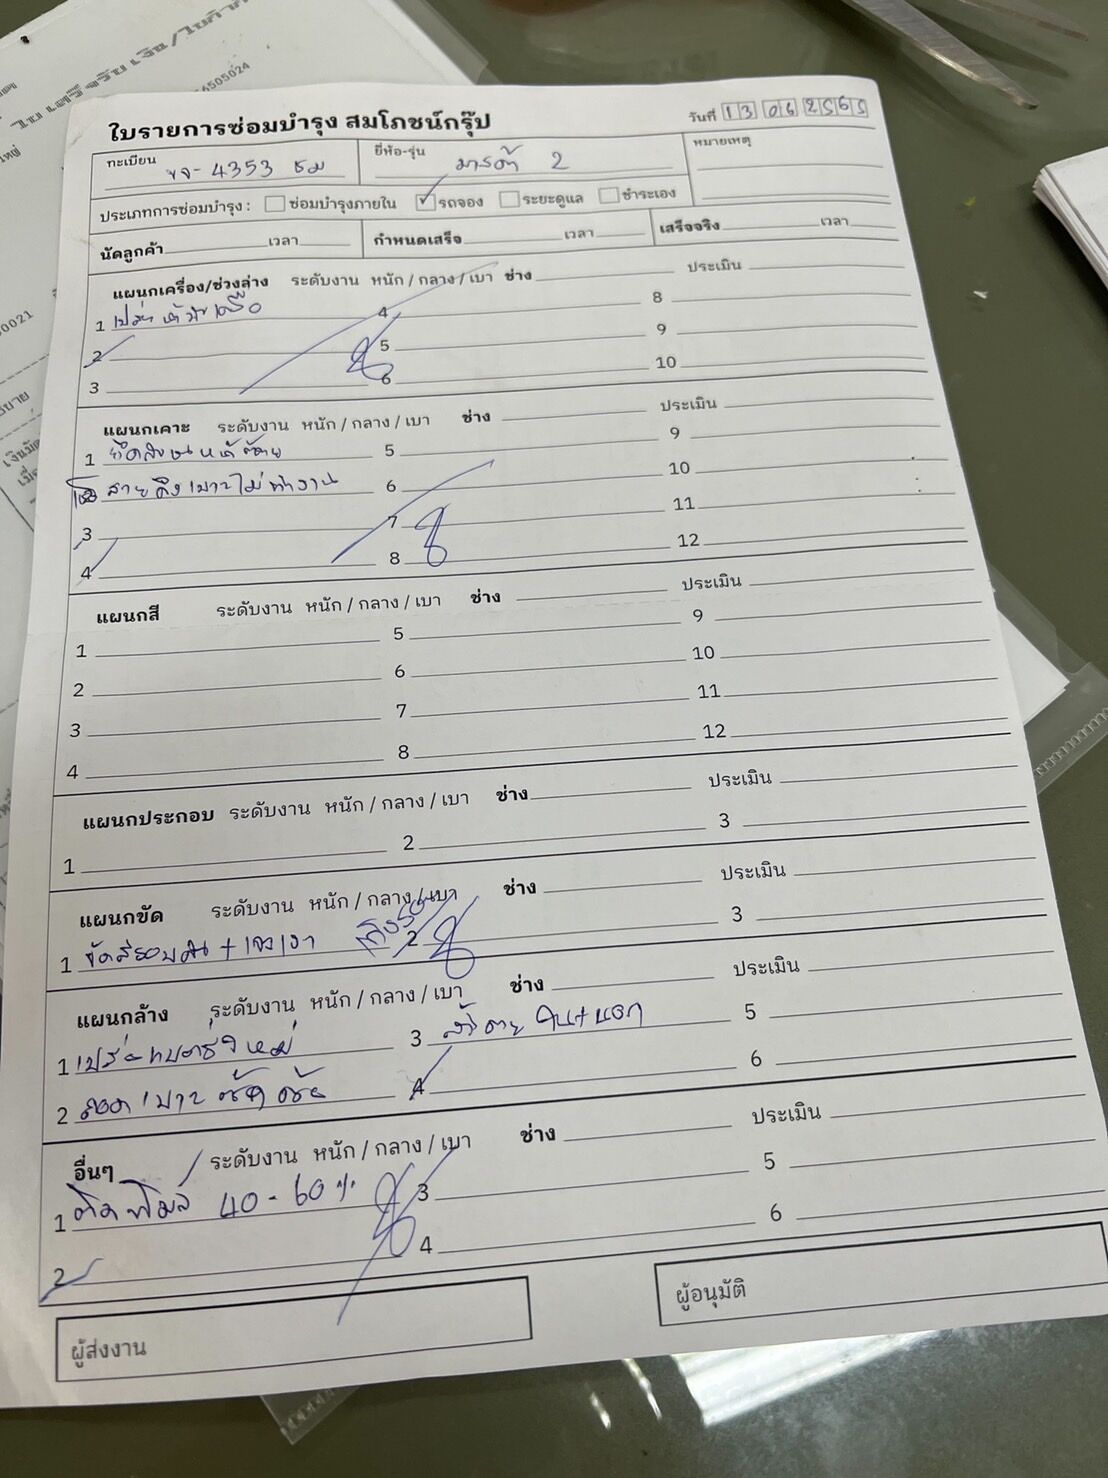 ใบเสร็จรับเงิน/ใบกำกั
6505024
ใบรายการซ่อมบำรุง สมโภชน์กรุ๊ป
วันที่ 13 06 2565
ทะเบียน ขจ-4353 ชม ยี่ห้อ-รุ่น มาสด้า 2 หมายเหตุ
ประเภทการซ่อมบำรุง : ซ่อมบำรุงภายใน รถจอง ระยะดูแล ชำระเอง
นัดลูกค้า เวลา กำหนดเสร็จ เวลา เสร็จจริง เวลา
แผนกเครื่อง/ช่วงล่าง ระดับงาน หนัก / กลาง / เบา ช่าง ประเมิน
1 4 8
2 5 9
3 6 10
แผนกเคาะ ระดับงาน หนัก / กลาง / เบา ช่าง ประเมิน
1 5 9
สายดึงเบาะไม่ทำงาน 6 10
3 7 11
4 8 12
แผนกสี ระดับงาน หนัก / กลาง / เบา ช่าง ประเมิน
1 5 9
2 6 10
3 7 11
4 8 12
แผนกประกอบ ระดับงาน หนัก / กลาง / เบา ช่าง ประเมิน
1 2 3
แผนกขัด ระดับงาน หนัก / กลาง / เบา ช่าง ประเมิน
1 ขัดสีรอบคัน + เงา 2 3
แผนกล้าง ระดับงาน หนัก / กลาง / เบา ช่าง ประเมิน
1 ใหม่ 3 5
2 ถอดเบาะซักด้วย 4 6
อื่นๆ ระดับงาน หนัก / กลาง / เบา ช่าง ประเมิน
1 ติดฟิล์ม 40-60% 3 5
2 4 6
ผู้ส่งงาน ผู้อนุมัติ